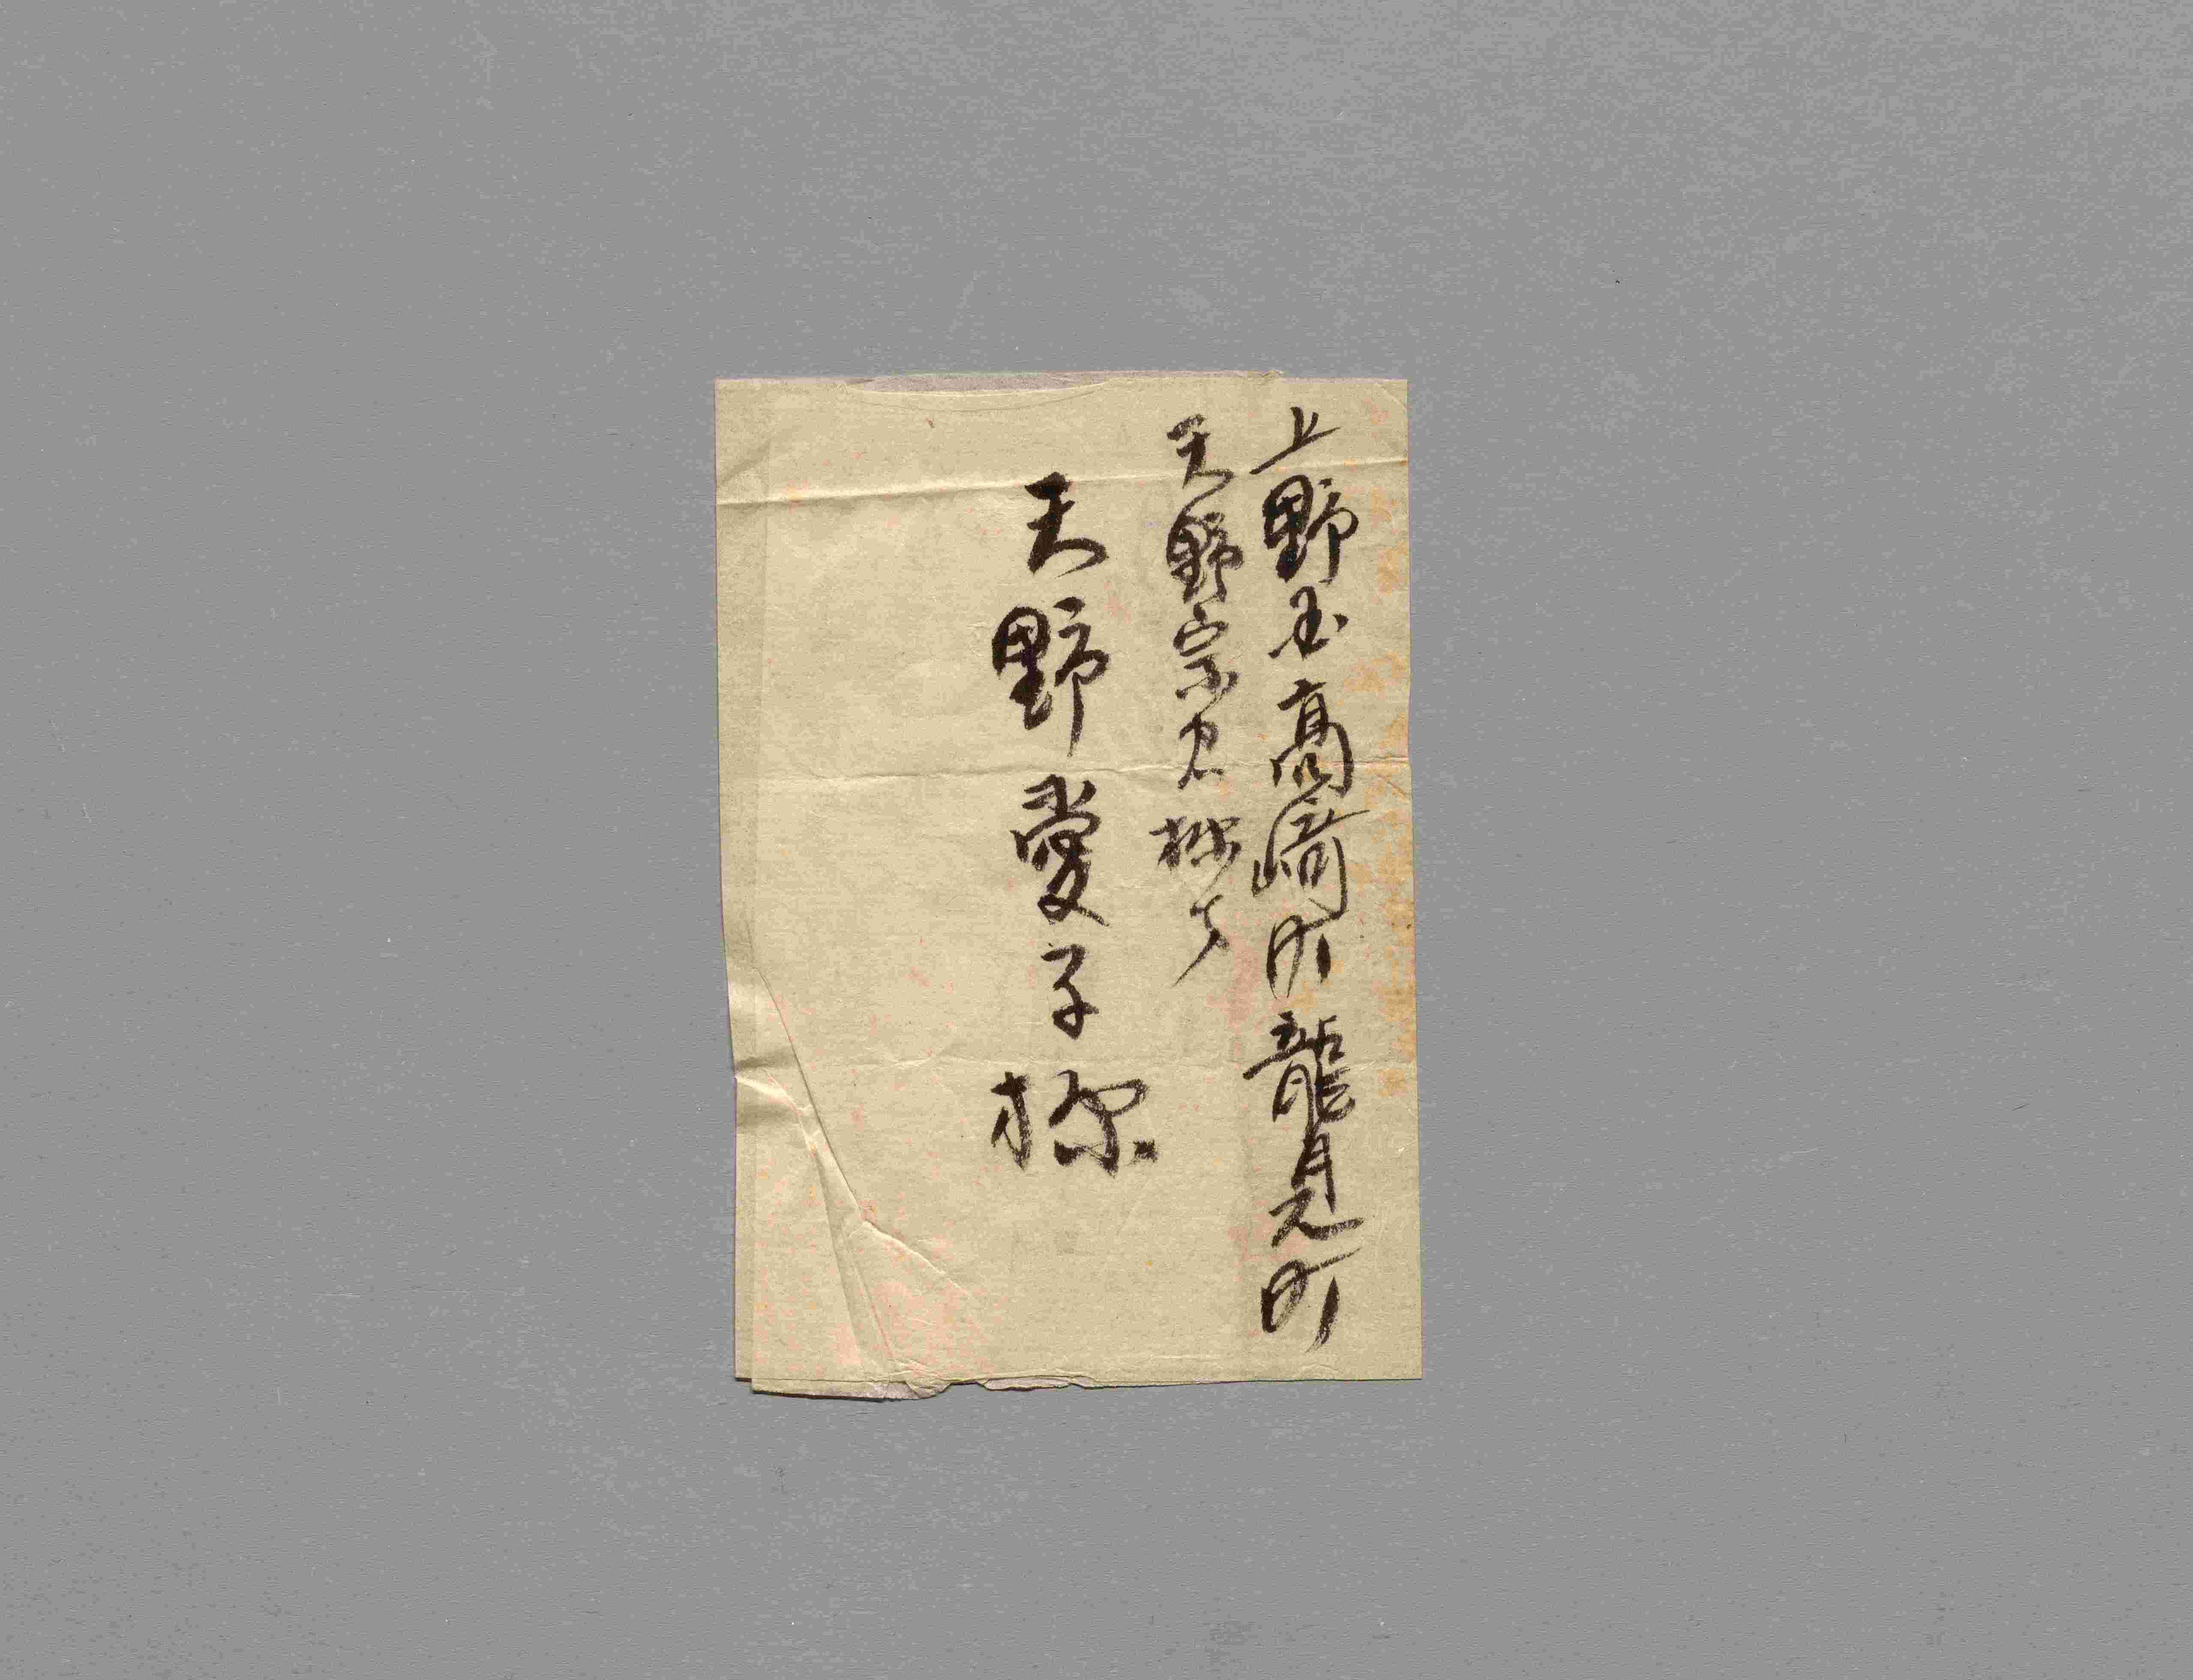 上野国高崎町龍見町
天野宗忠様方
天野愛子様